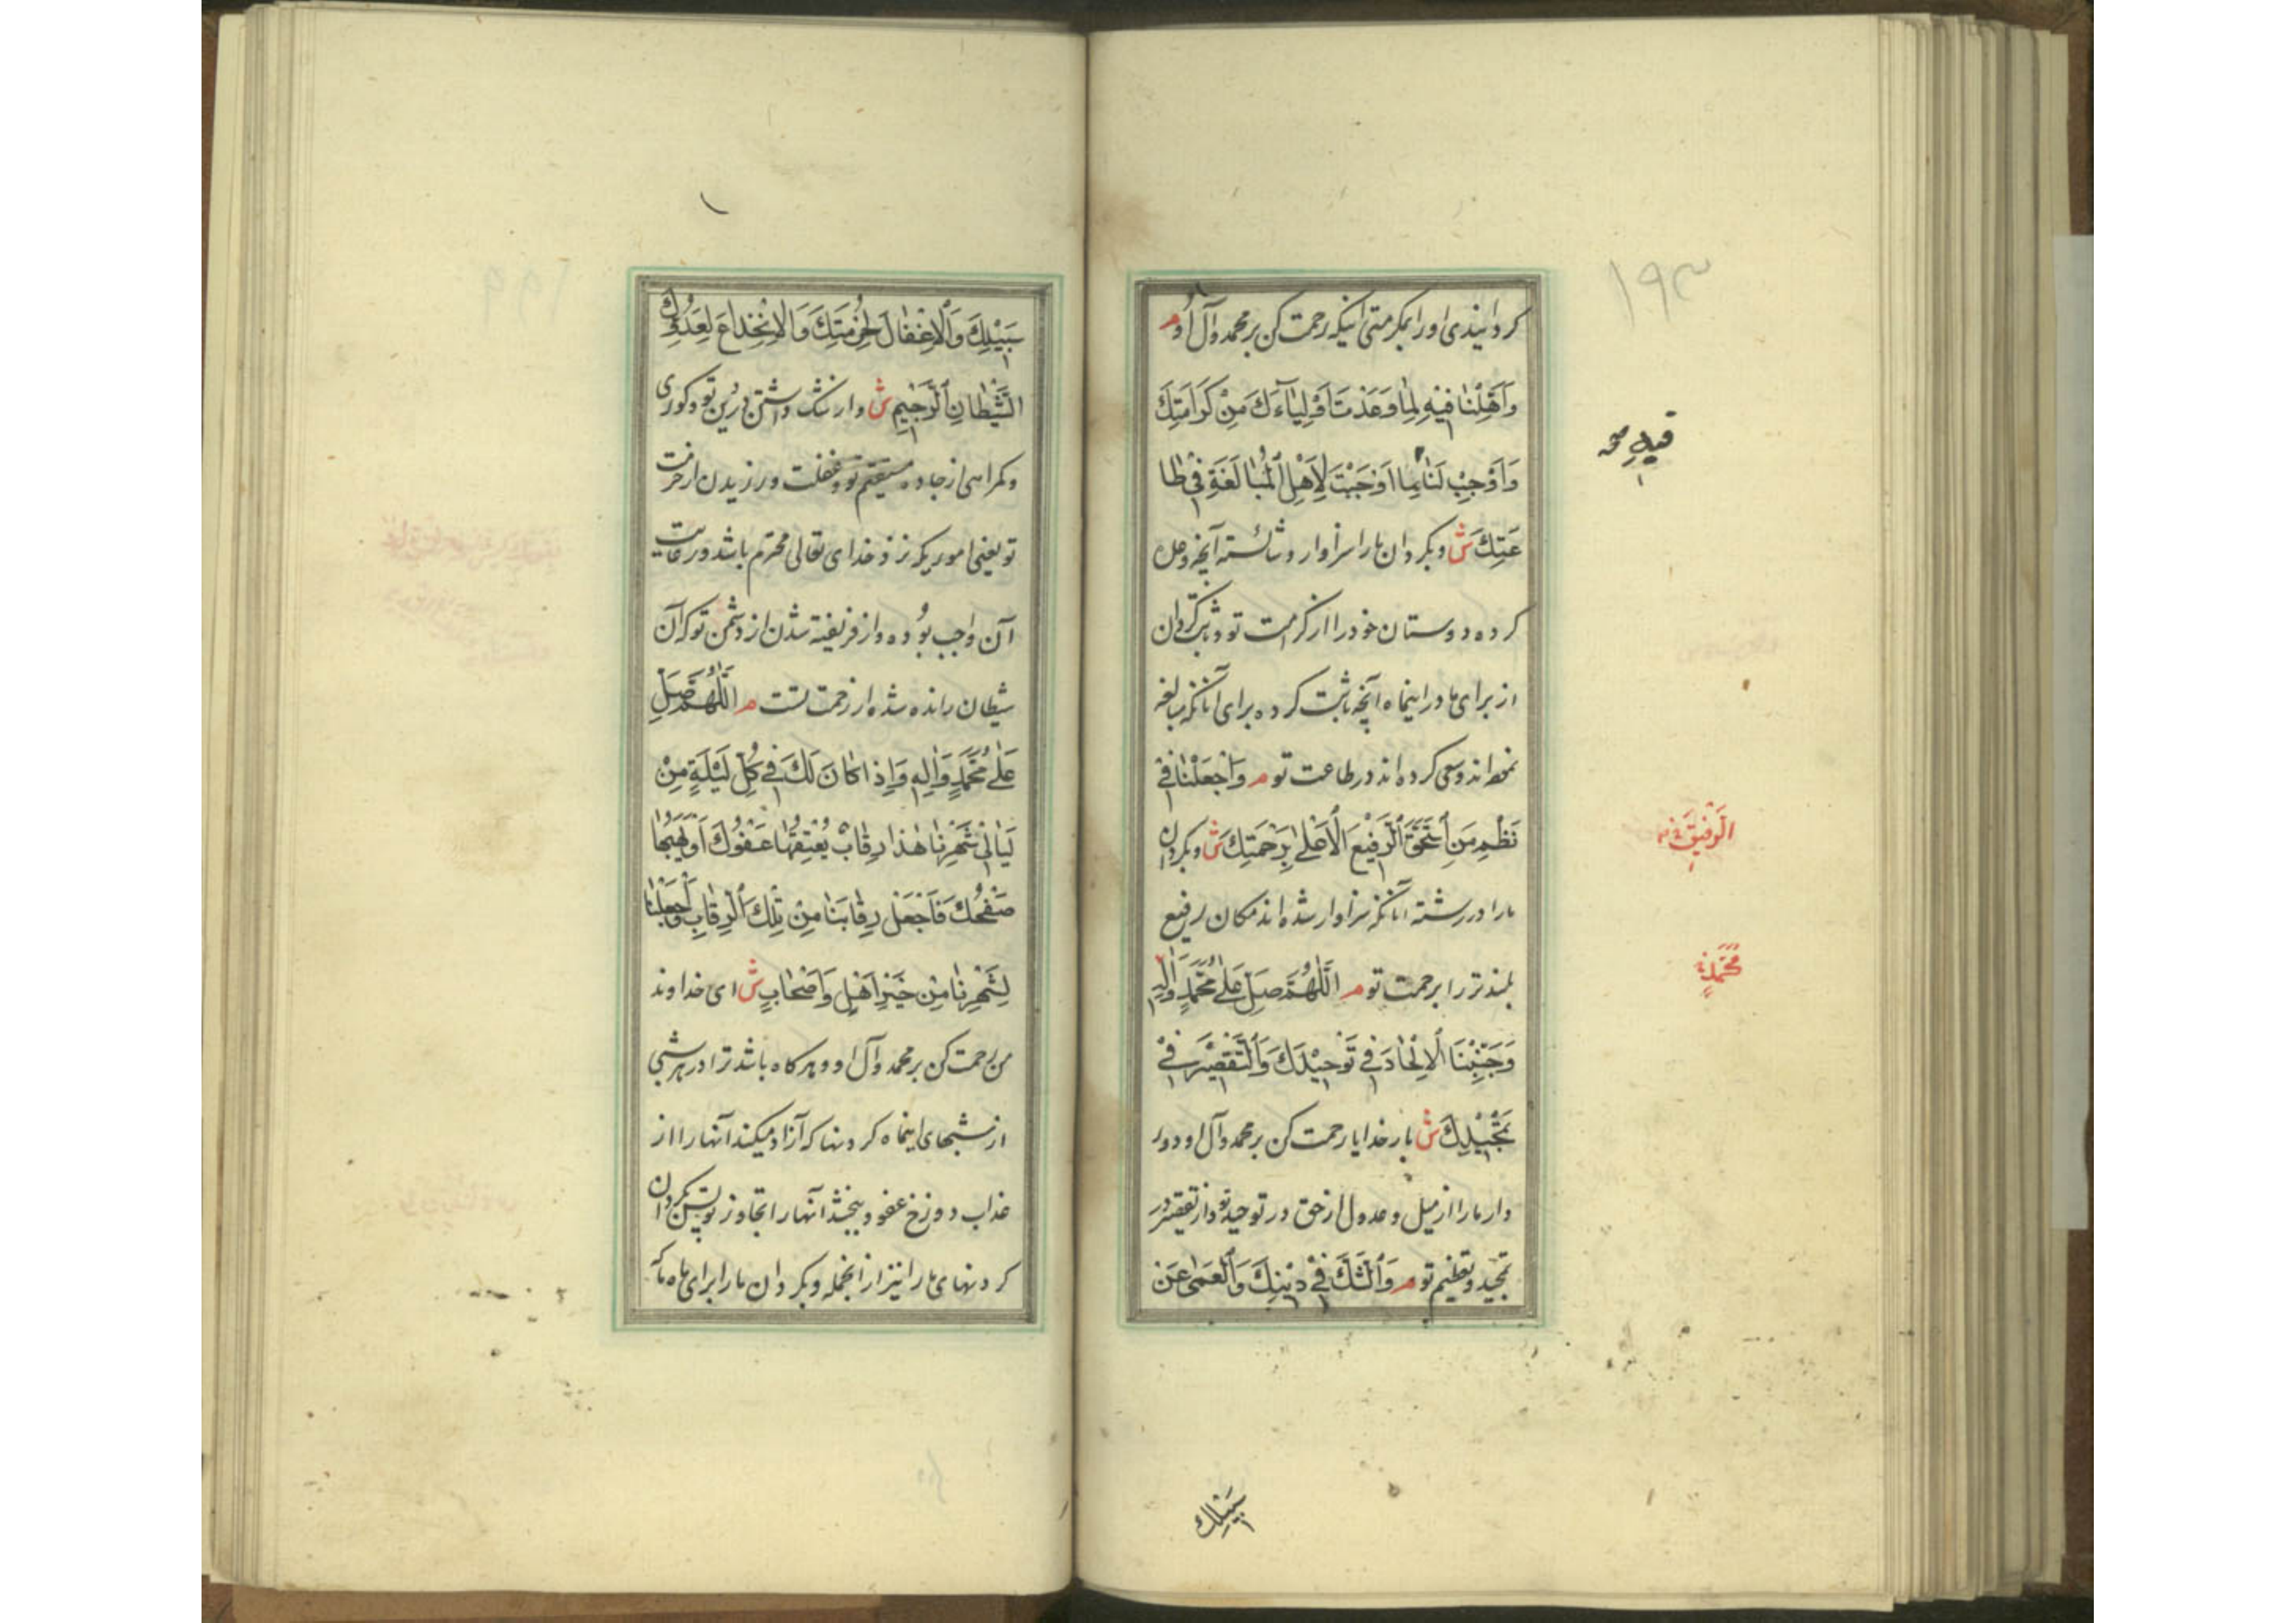 ۱۹۳
کردانیدی اورا بمکرمتی اینکه رحمت کن بر محمد و آل او م
وَاَهِّلْنا فيهِ لِما وَعَدْتَ اَوْلِيآءَكَ مِنْ كَرامَتِكَ
وَاَوْجِبْ لَنا ما اَوْجَبْتَ لِاَهْلِ الْمُبالَغَةِ في طا
عَتِكَ ش و بکردان ما را سزاوار و شائسته آنچه وعده
کرده دوستان خود را از کرامت تو و ثابت کردان
از برای ما در اینماه آنچه ثابت کرده برای آنانکه مبالغه
نموده اند و سعی کرده اند در طاعت تو م وَاجْعَلْنا في
نَظْمِ مَنِ اسْتَحَقَّ الرَّفيعَ الْاَعْلىٰ بِرَحْمَتِكَ ش و بکردان
ما را در رشته آنانکه سزاوار شده اند مکان رفیع
بلندتر را برحمت تو م اَللّٰهُمَّ صَلِّ عَلىٰ مُحَمَّدٍ وَاٰلِهِ
وَجَنِّبْنَا الْاِلْحادَ في تَوْحيدِكَ وَالتَّقْصيرَ في
تَمْجيدِكَ ش بار خدایا رحمت کن بر محمد و آل او و دور
دار ما را از میل و عدول از حق در توحید تو و از تقصیر در
تمجید و تعظیم تو م وَالشَّكَّ في دينِكَ وَالْعَمىٰ عَنْ
الرَّفيقَ
مُحَمَّدٍ
سَبيلِكَ
سَبيلِكَ وَالْاِغْفالَ لِحُرْمَتِكَ وَالْاِنْخِداعَ لِعَدُوِّكَ
الشَّيْطانِ الرَّجيمِ ش و از شک داشتن در دین تو و کوری
و کمراهی از جاده مستقیم تو و غفلت ورزیدن از حرمت
تو یعنی اموریکه نزد خدای تعالی محترم باشد و رعایت
آن واجب بوده و از فریفته شدن از دشمن تو که آن
شیطان رانده شده از رحمت تست م اَللّٰهُمَّ صَلِّ
عَلىٰ مُحَمَّدٍ وَاٰلِهِ وَاِذا كانَ لَكَ في كُلِّ لَيْلَةٍ مِنْ
لَيالي شَهْرِنا هٰذا رِقابٌ يُعْتِقُها عَفْوُكَ اَوْ يَهَبُها
صَفْحُكَ فَاجْعَلْ رِقابَنا مِنْ تِلْكَ الرِّقابِ وَاجْعَلْنا
لِشَهْرِنا مِنْ خَيْرِ اَهْلٍ وَاَصْحابٍ ش ای خداوند
من رحمت کن بر محمد و آل او و هرکاه باشد ترا در هر شبی
از شبهای اینماه کردنها که آزاد میکند آنها را از
عذاب دوزخ عفو و ببخشد آنها را تجاوز تو پس بکردان
کردنهای ما را نیز از آنجمله و بکردان ما را برای ماه ما که